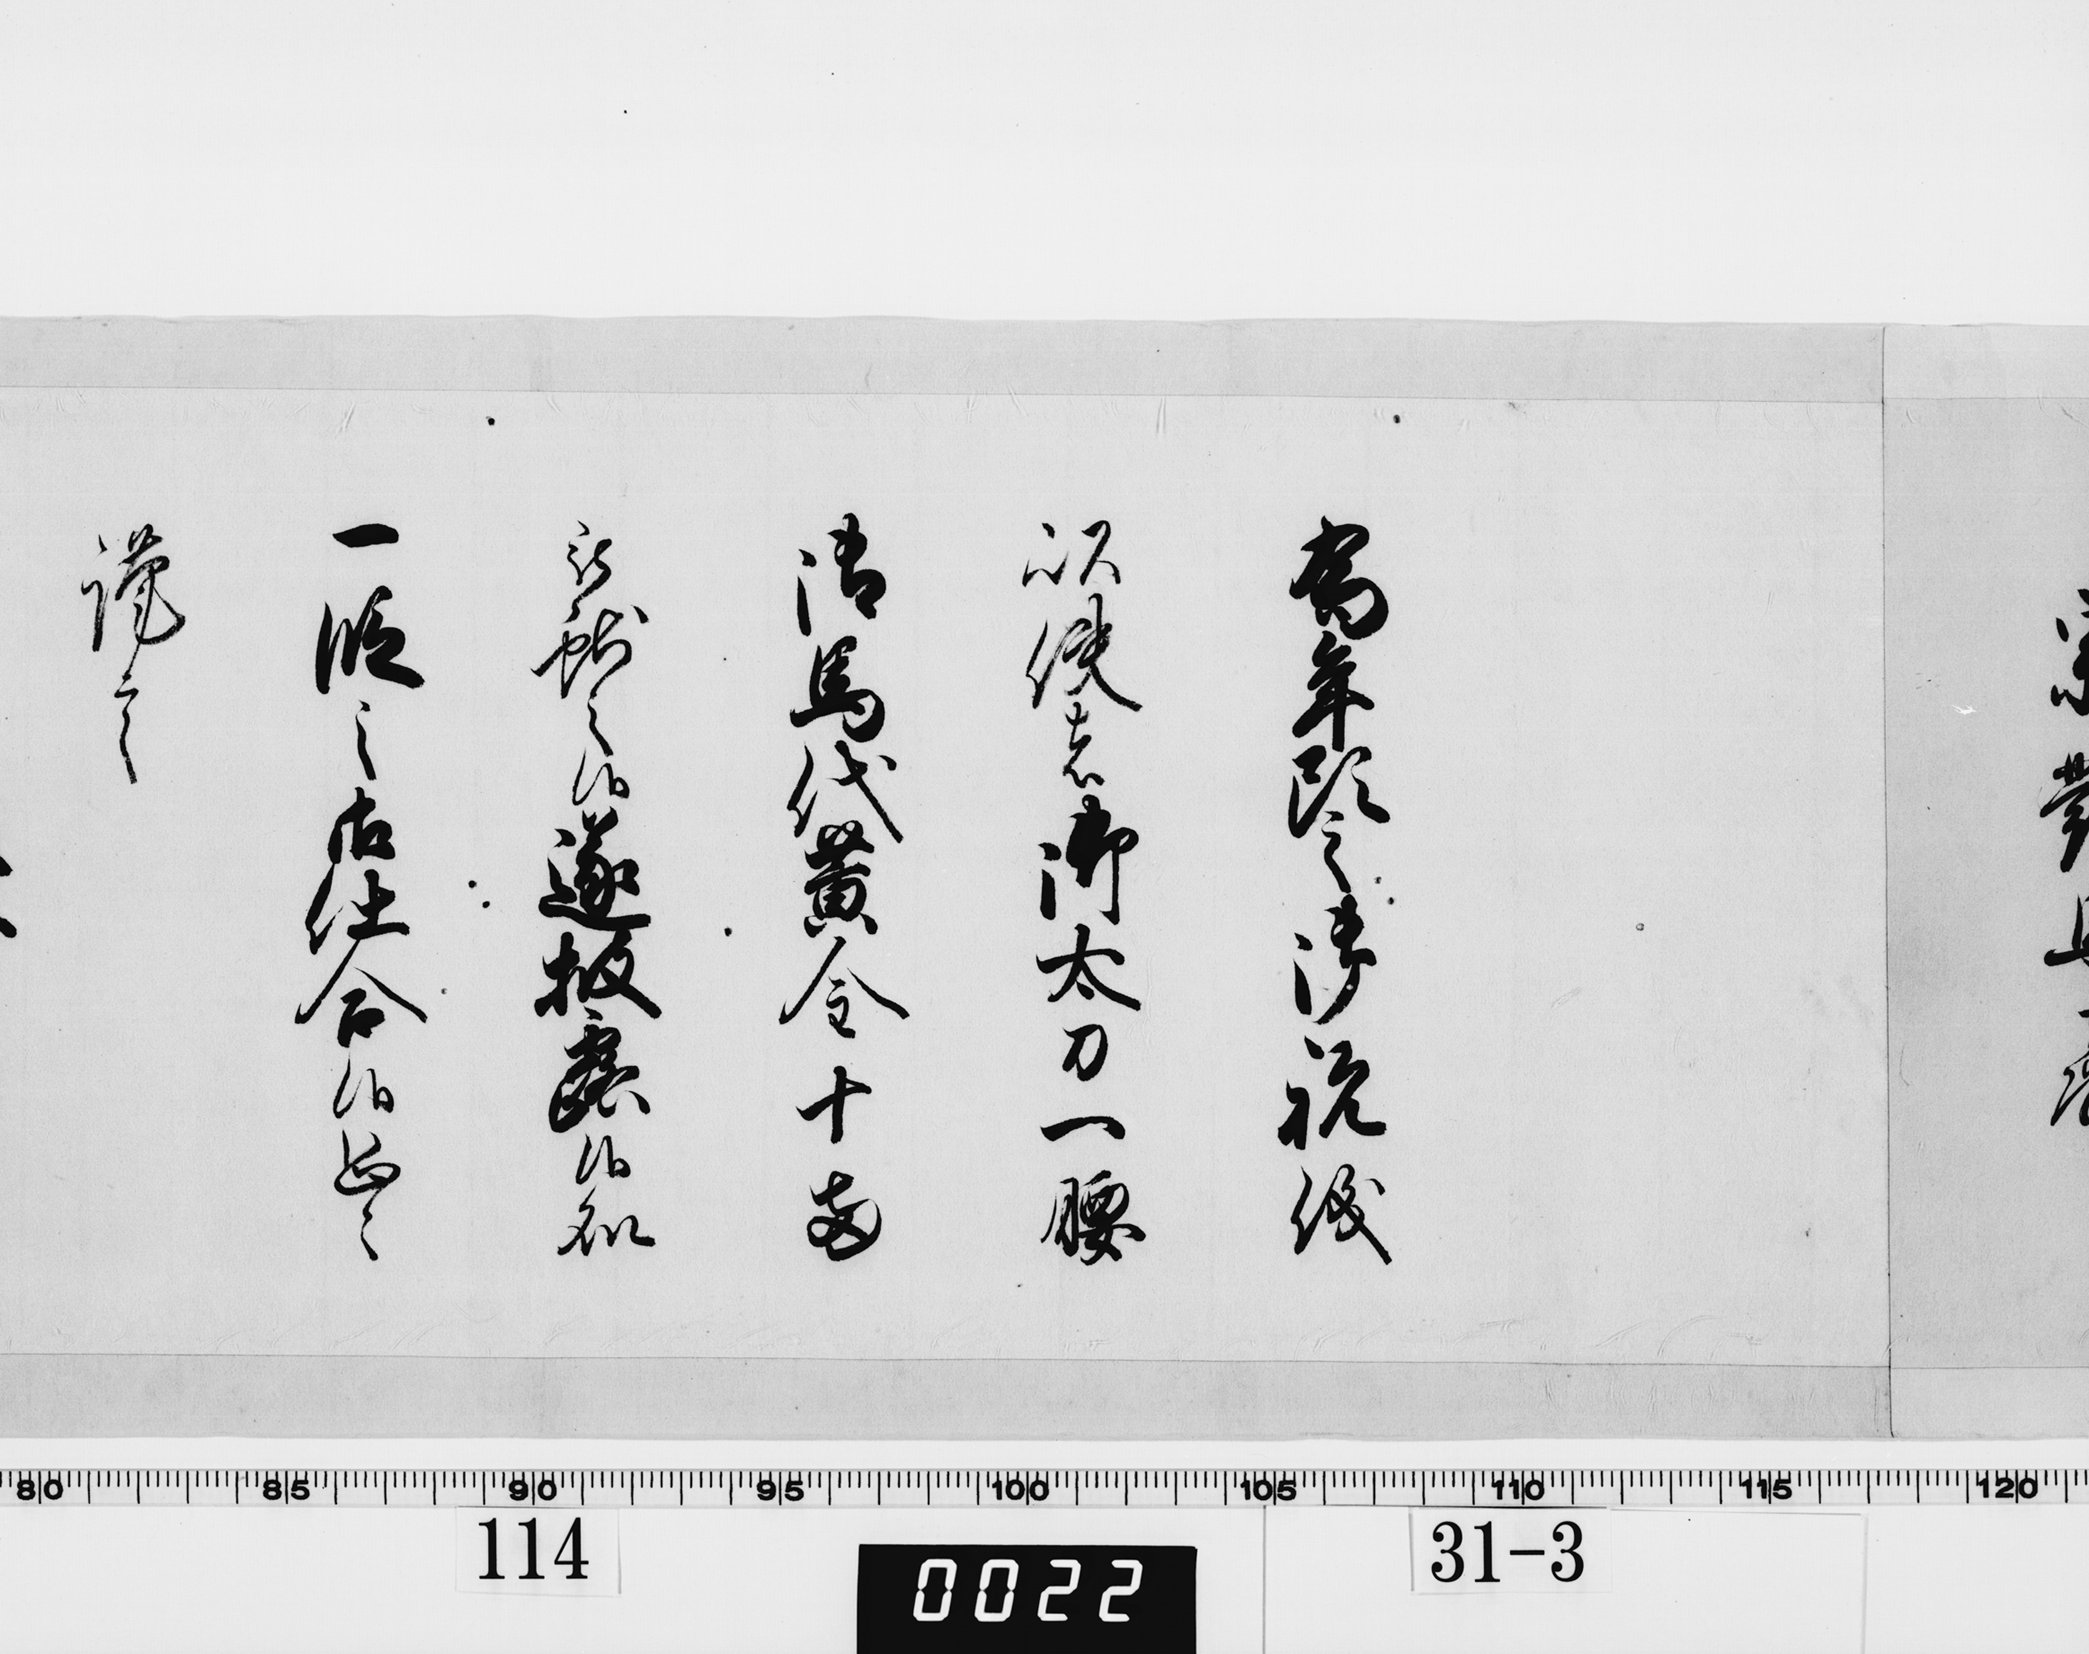 宗對馬
為年頭之御祝儀
以使者御太刀一腰
御馬代黄金十両
被献之候遂披露候処
一段之御仕合候恐々
謹言
80 85 90 95 100 105 110 115 120
114
0022
31-3